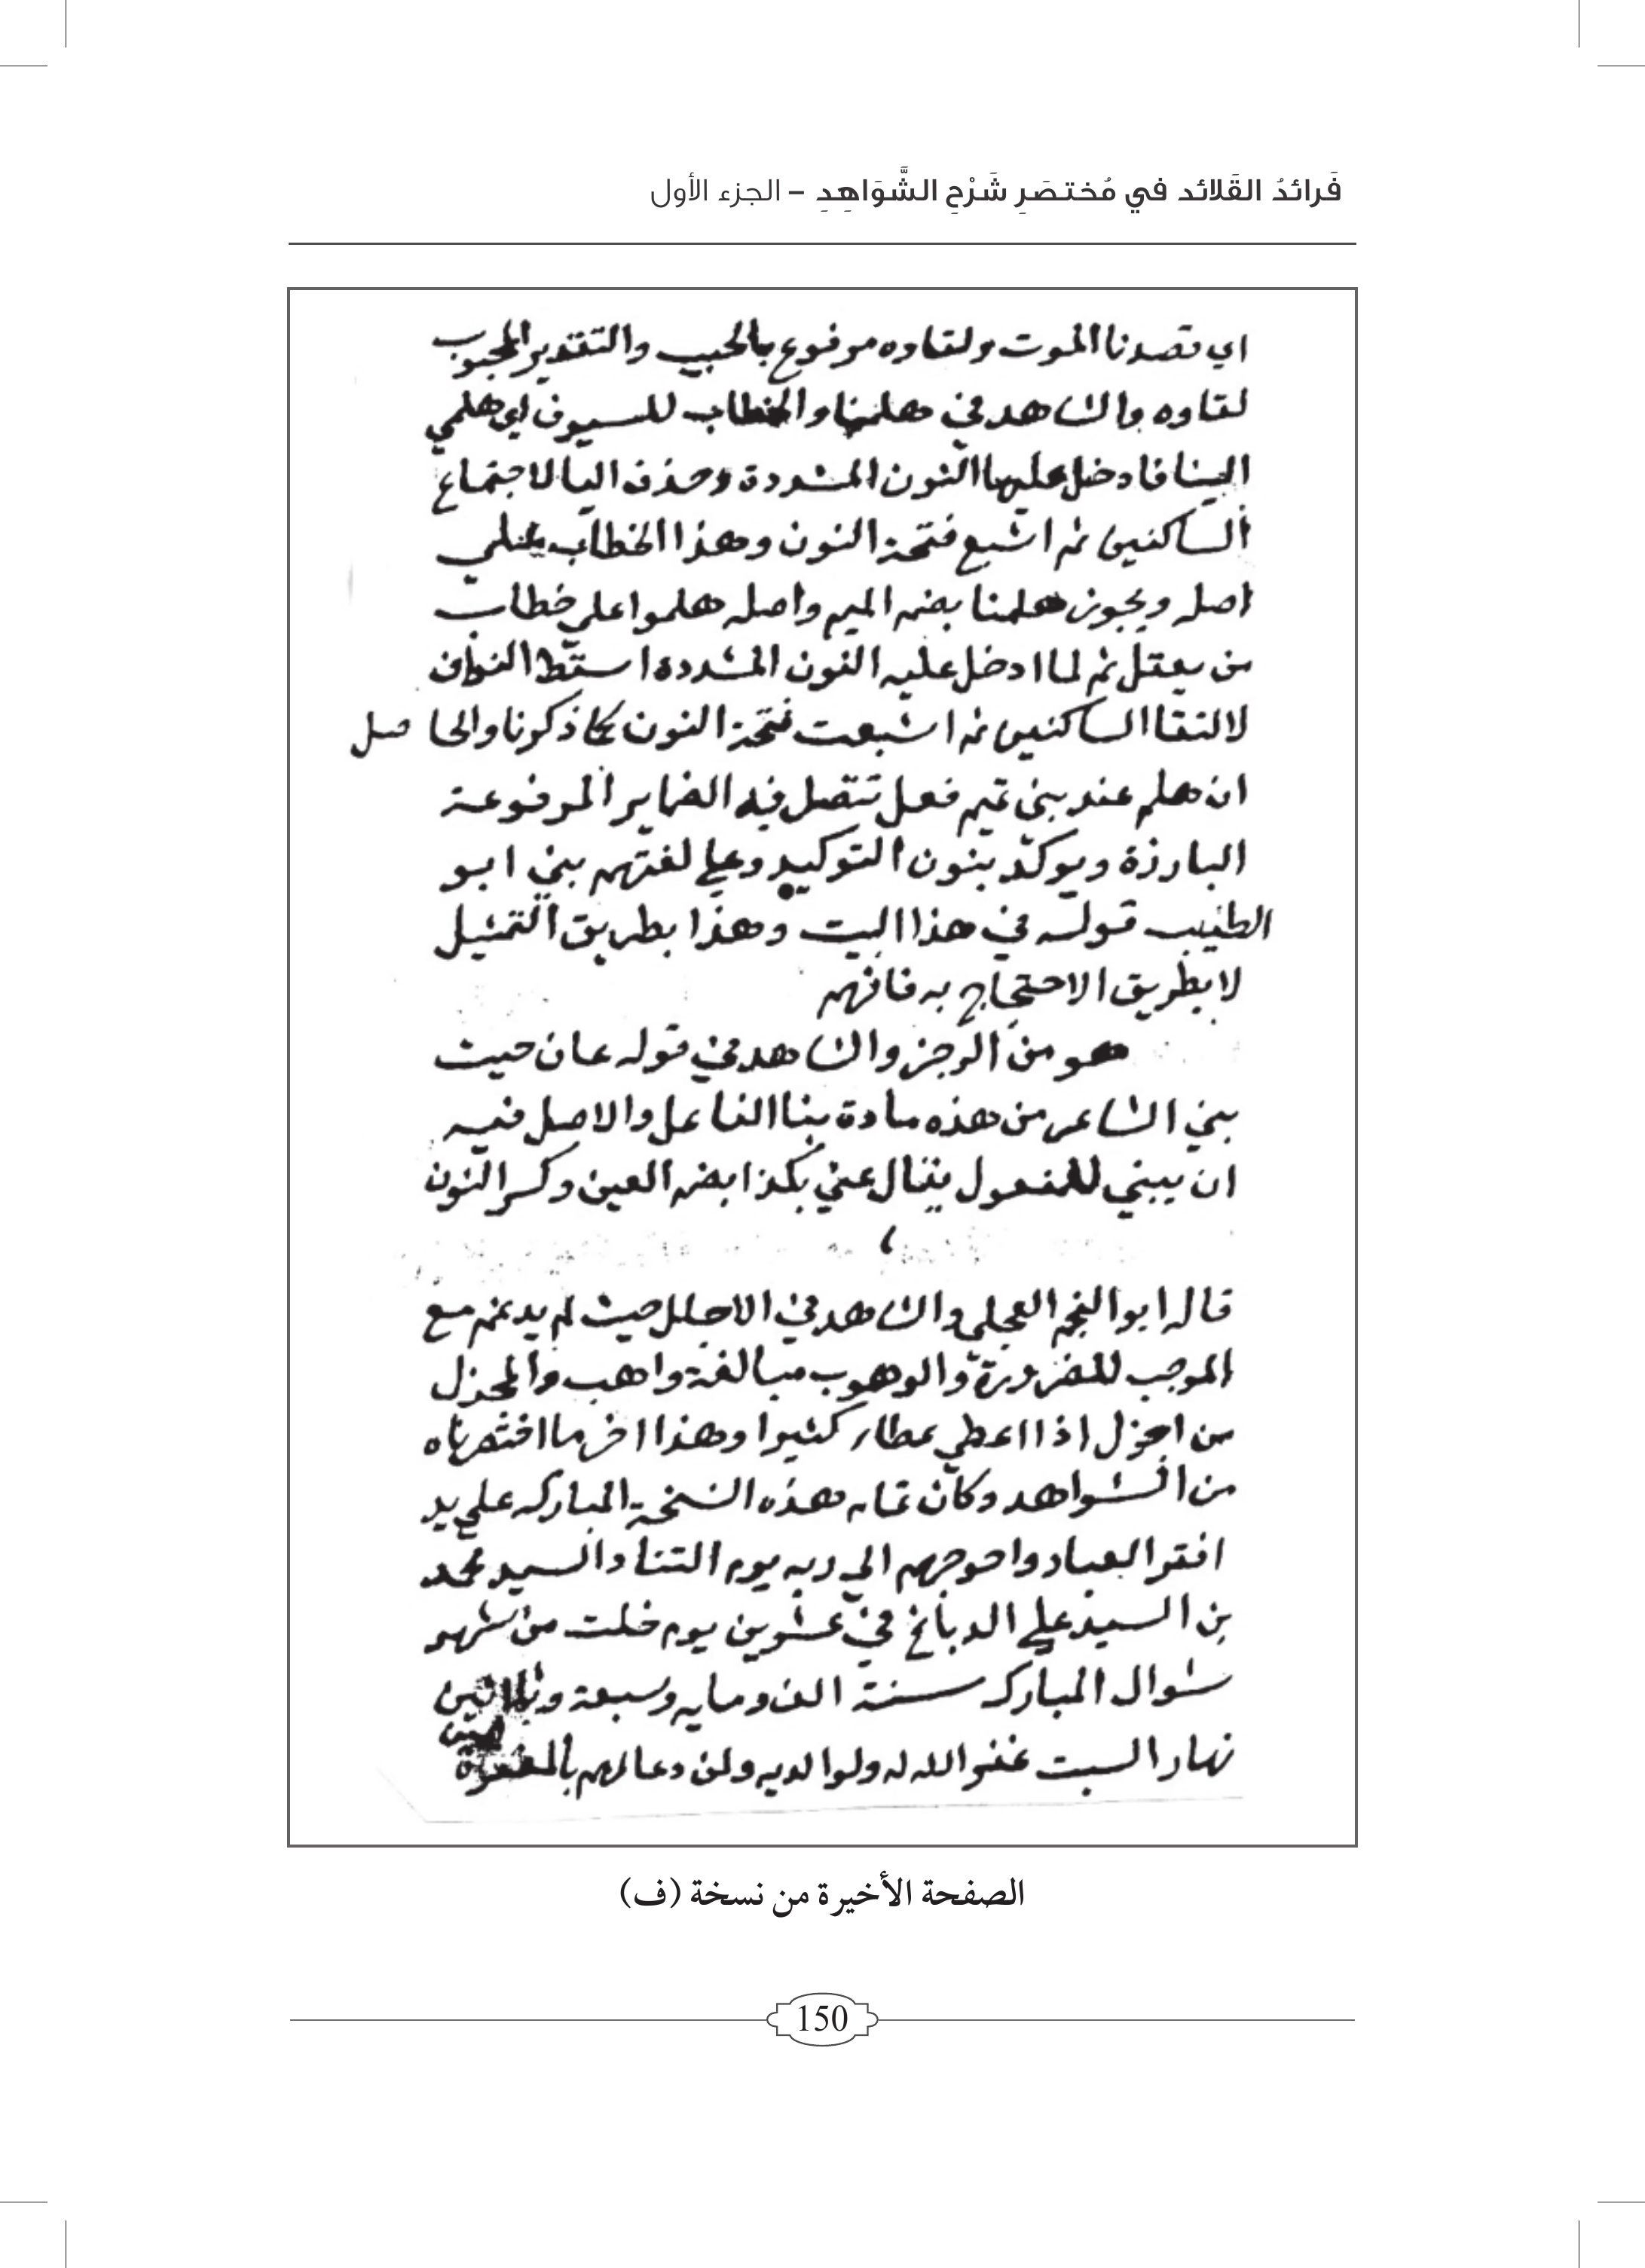 فَرائدُ القَلائد في مُختصَرِ شَرْحِ الشَّوَاهِدِ – الجزء الأول
اي قصدنا الموت ولقاوه مرفوع بالحبيب والتقدير المحبوب
لقاوه والشاهد في هلمنا والخطاب للسيوف اي هلمي
الينا فادخل عليها النون المشددة وحذف اليا لاجتماع
الساكنين ثم اشبع فتحة النون وهذا الخطاب علي
اصله ويجوز هلمنا بضم الميم واصله هلموا علي خطاب
من يعقل ثم لما ادخل عليه النون المشدده اسقط الواو
لالتقا الساكنين ثم اشبعت فتحة النون كما ذكرنا والحاصل
ان هلم عند بني تميم فعل تتصل فيه الضماير المرفوعة
البارزة ويوكد بنون التوكيد وعلي لغتهم بني ابو
الطيب قوله في هذا البيت وهذا بطريق التمثيل
لا بطريق الاحتجاج به فافهم
هو من الرجز والشاهد في قوله عان حيث
بني الشاعر من هذه مادة بنا الفاعل والاصل فيه
ان يبني للمفعول يقال عني بكذا بضم العين وكسر النون
قاله ابو النجم العجلي والشاهد في الاجلل حيث لم يدغم مع
الموجب للضرورة والوهوب مبالغة واهب والمجزل
من اجزل اذا اعطي عطاء كثيرا وهذا اخر ما اختصرناه
من الشواهد وكان تمام هذه النسخة المباركه علي يد
افقر العباد واحوجهم الي ربه يوم التناد السيد محمد
بن السيد علي الدباغ في عشرين يوم خلت من شهر
شوال المبارك سنة الف ومايه وسبعة وثلاثين
نهار السبت غفر الله له ولوالديه ولمن دعا لهم بالمغفرة
امين
الصفحة الأخيرة من نسخة (ف)
150